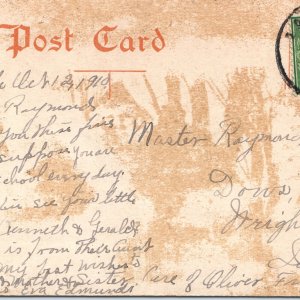 Post Card
Oct 12, 1910
Raymond
you this
suppose you are
school every day.
see your little
Kenneth & Gerald
is from their Aunt
my best wishes
Mother & Sister
Eva Edmunds
Master Raymond
Dows,
Wright
Care of Oliver